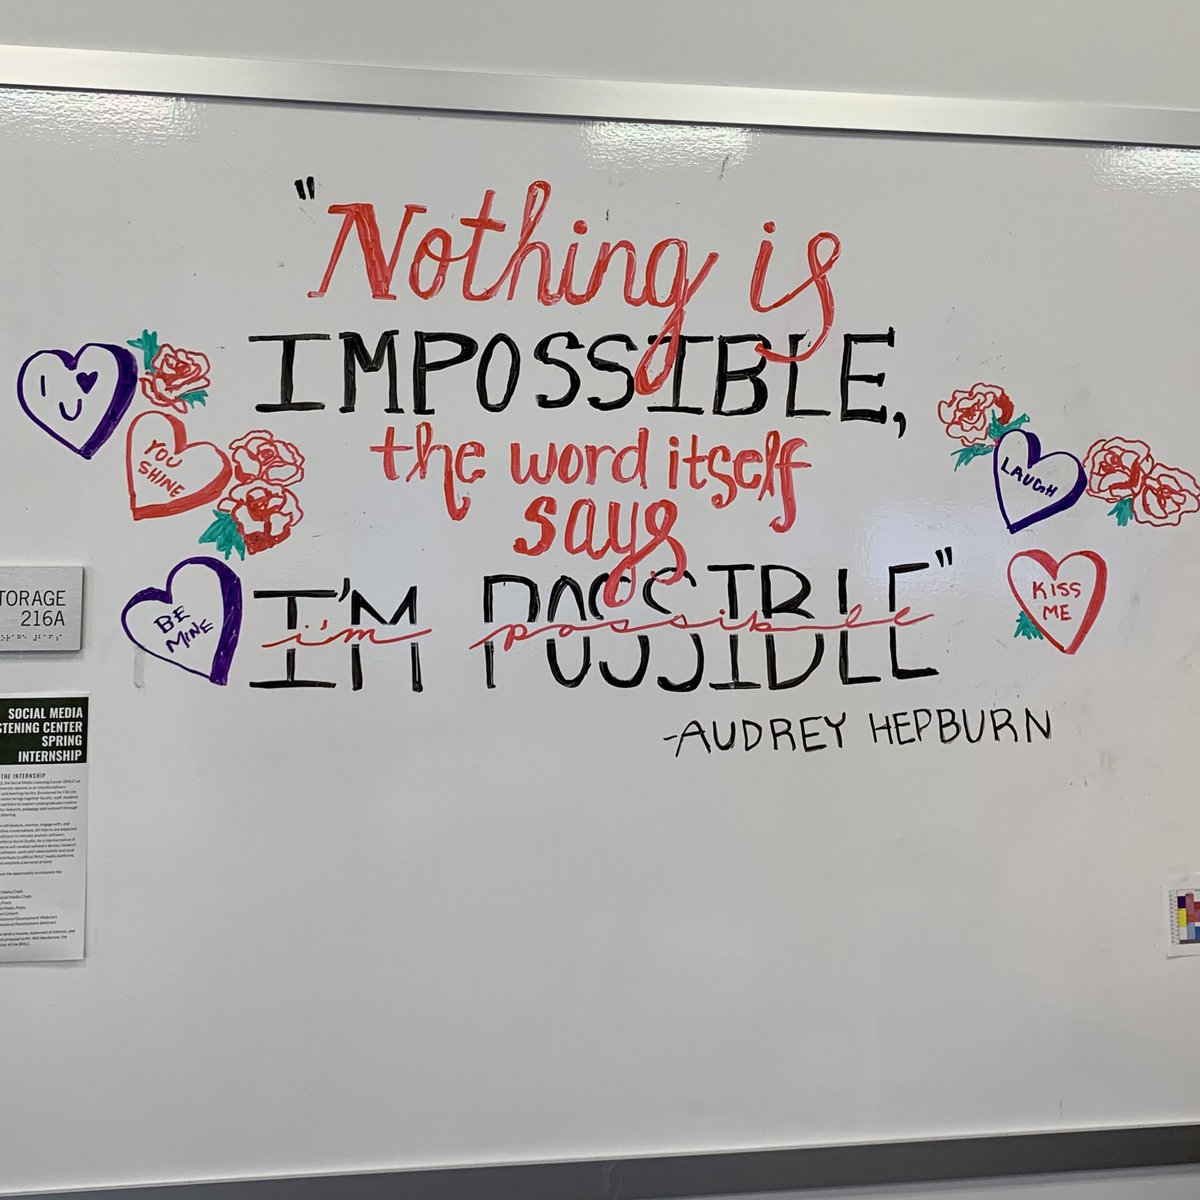 "Nothing is
IMPOSSIBLE,
the word itself
says
I'M POSSIBLE"
i'm possible
-AUDREY HEPBURN
YOU
SHINE
BE
MINE
LAUGH
KISS
ME
TORAGE
216A
SOCIAL MEDIA
STENING CENTER
SPRING
INTERNSHIP
THE INTERNSHIP